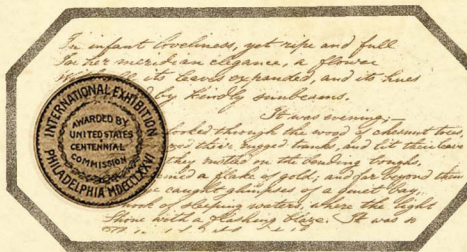 In infant loveliness, yet ripe and full
In her meridian elegance, a flower
its leaves expanded, and its hues
by kindly sunbeams.
It was evening;
looked through the wood of chesnut trees,
their rugged trunks, and lit their leaves
they rustled on the bending boughs,
a flake of gold; and far beyond them
caught glimpses of a quiet bay,
of sleeping waters, where the light
Shone with a flushing blaze. It was so
INTERNATIONAL EXHIBITION
PHILADELPHIA MDCCCLXXVI
AWARDED BY
UNITED STATES
CENTENNIAL
COMMISSION